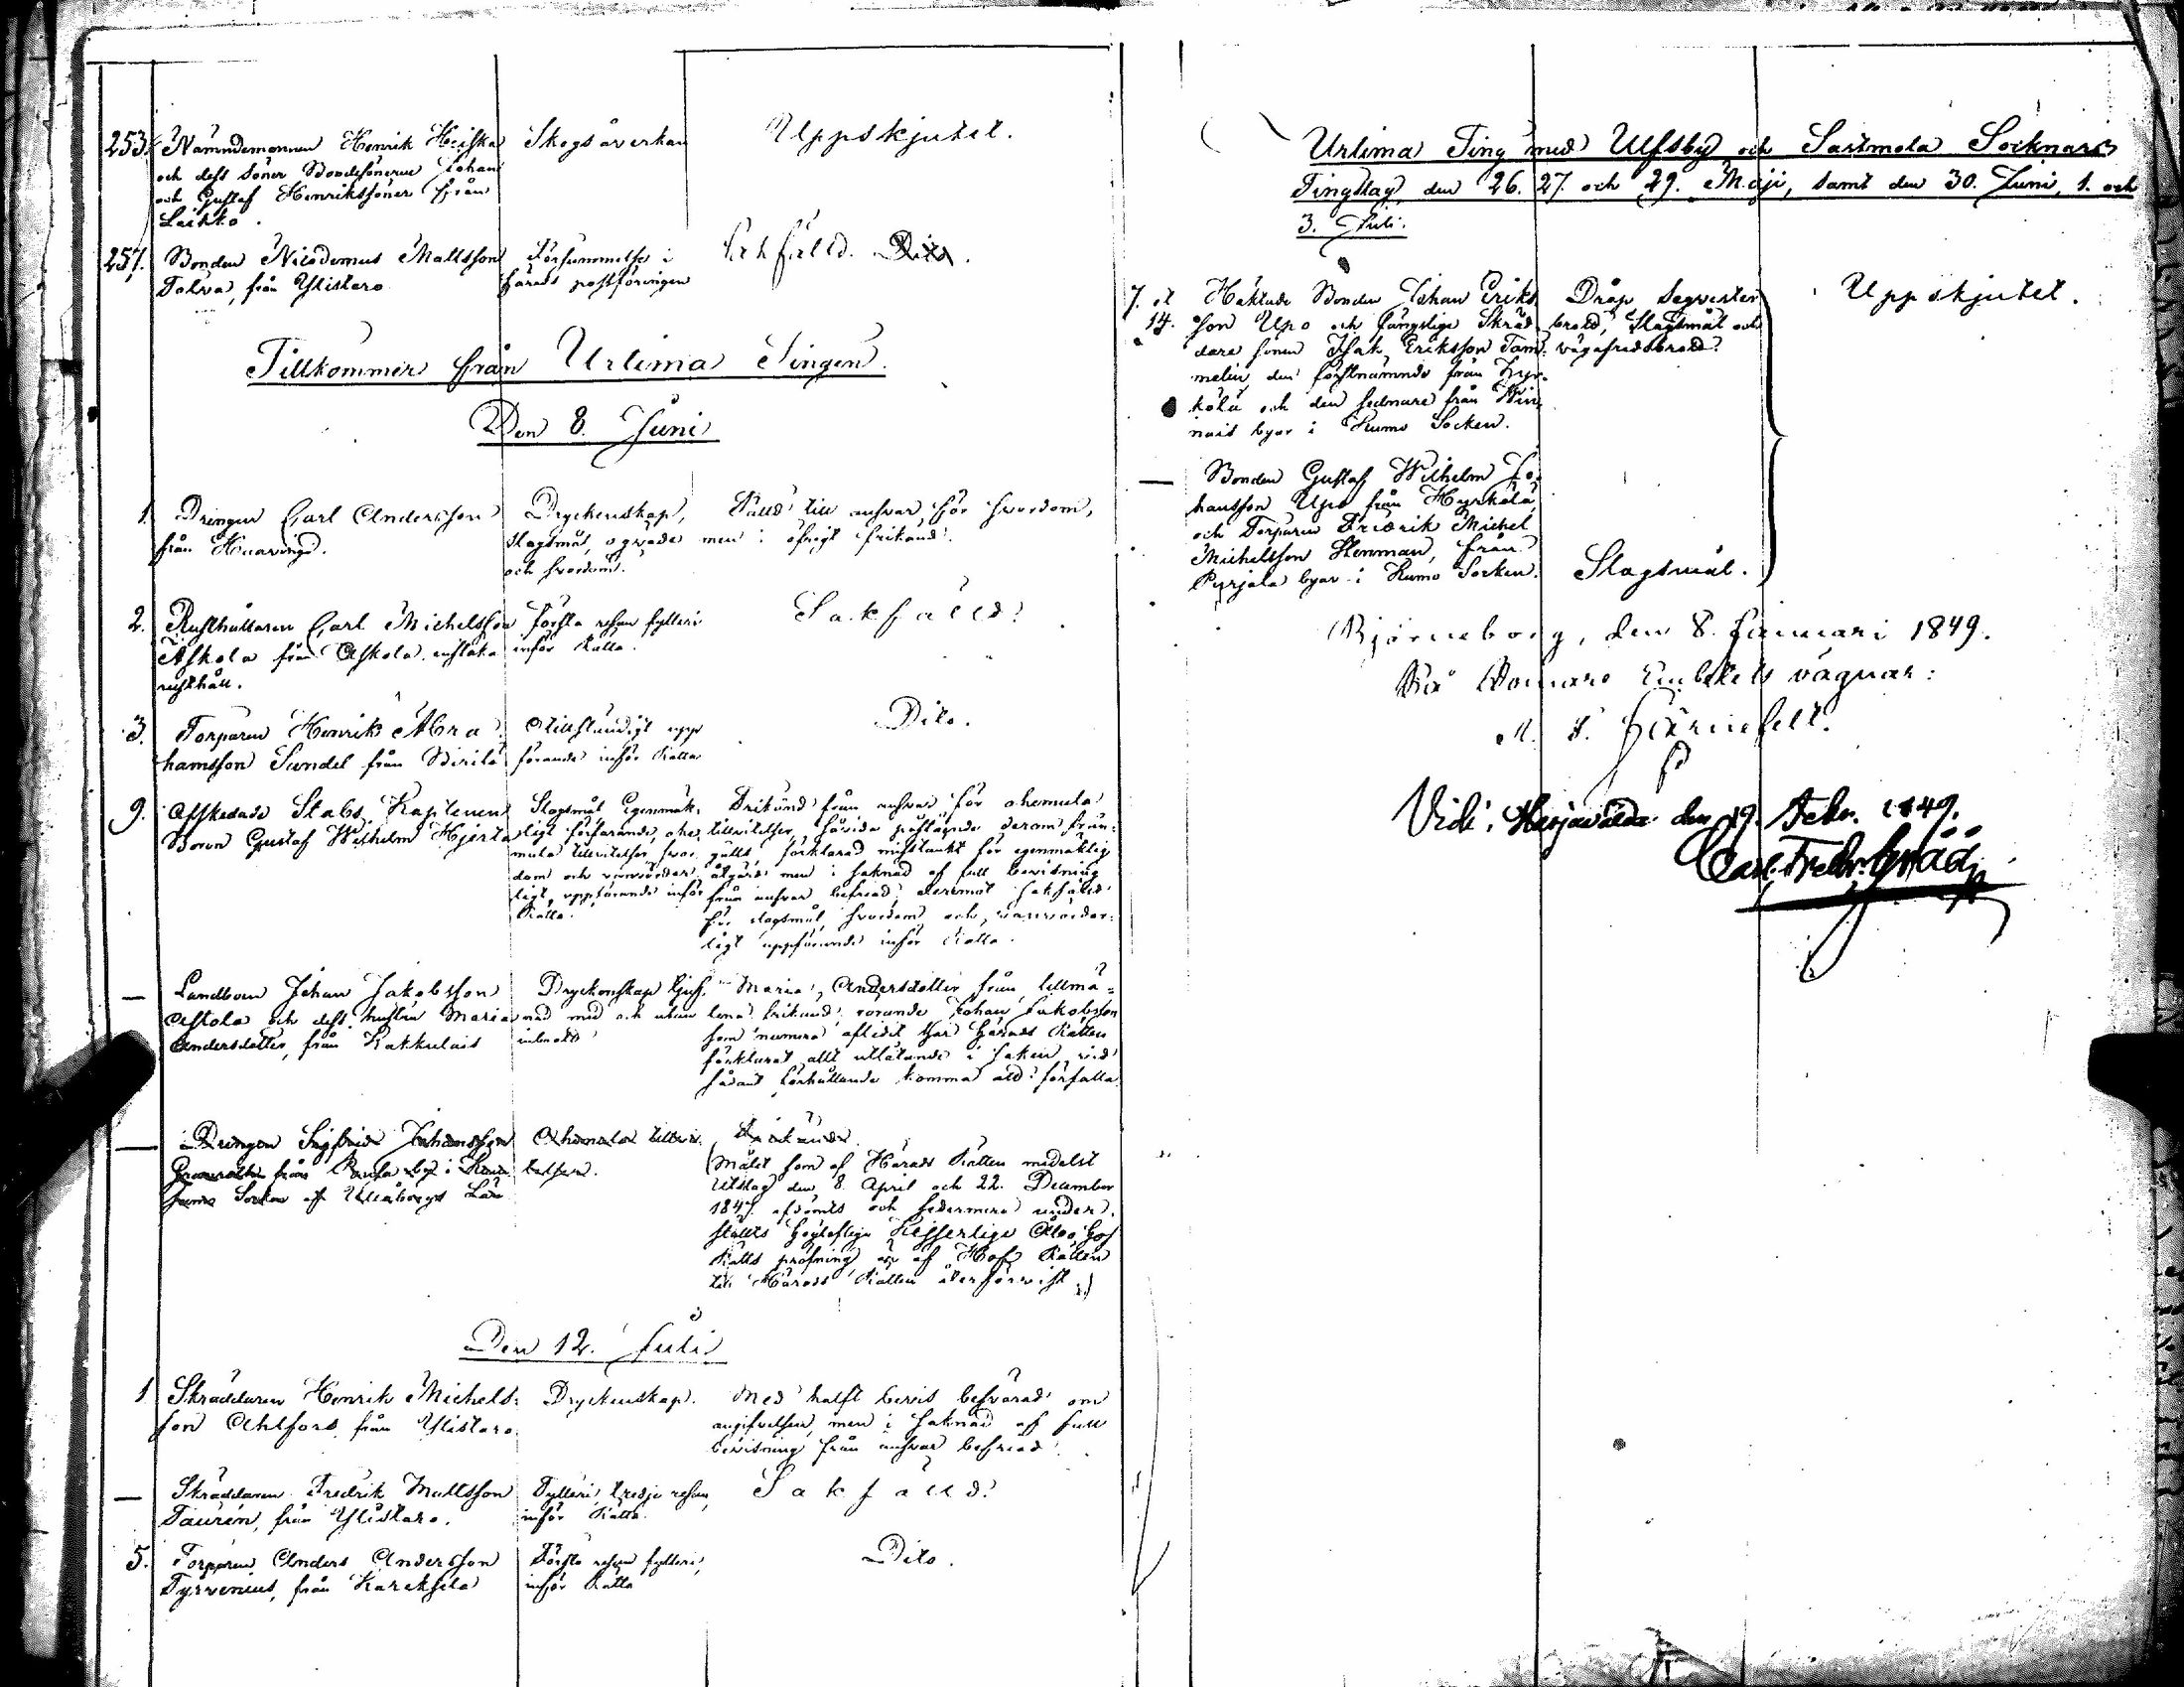 253. Nämndemannen Henrik Heiska Skogsåverkan Uppskjutet.
och dess Söner Bondesönerne Johan
och Gustaf Henrikssöner från
Laihko.
257. Bonden Nicodemus Mattsson Försummelse i Sakfälld. Dito.
Talva, från Ylistaro härads postföringen
Tillkommer från Urtima Tingen.
Den 8. Juni
1. Drängen Carl Andersson Dryckenskap, Fälld till ansvar för svordom,
från Huaringi. slagsmål, oqväde men i öfrigt frikänd.
och svordom.
2. Rusthållaren Carl Michelsson Första resan fylleri Sakfälld.
Äskola från Askola inför Rätta.
rusthåll.
3. Torparen Henrik Abra Dito.
hamsson Sundel från förande inför Rätta
9. Afskedade Stabs Kaptenen Slagsmål, Egenmäk- Frikänd från ansvar för ohemula
Baron Gustaf Wilhelm Hjerta ligt förfarande, ohe- tillvitelser, såvida påstående derom från-
mula tillvitelser, svor- gålls, förklarad misstänkt för egenmäktig
dom och vanvördes- åtgärd men i saknad af full bevisning
ligt, uppförande inför från ansvar befriad, deremot sakfälld
Rätta. för slagsmål, svordom och vanvördes-
ligt uppförande inför Rätta.
— Landbonden Johan Jakobsson Dryckenskap ljus- Maria Andersdotter från tillmä-
Astola och dess hustru Maria nad med och utan lena frikänd, varande Johan Jakobsson
Andersdotter, från Kakkulais inbrott som numera aflidit har Härads Rätten
förklarat allt utlåtande i saken vid
sådant förhållande komma att förfalla.
— Drengen Sigfrid Johansson Ohemula tillvi- Frikänd.
från by i telser. (Målet som af Härads Rätten medelst
Socken af Uleåborgs Län Utslag den 8. April och 22. December
1847. afdömts och sedermera under-
ställts Höglofliga Kejserliga Åbo Hof
Rätts pröfning är af Hof Rätten
till Härads Rätten återförvist.)
Den 12. Juli
1 Skräddaren Henrik Michels- Dryckenskap. Med halft bevis besvärad om
son Ahlfors från Ylistaro. angifvelsen, men i saknad af full
bevisning från ansvar befriad.
— Skräddaren Fredrik Mattsson Fylleri, tredje resan, Sakfälld.
Taurén, från Ylistaro. inför Rätta.
5. Torparen Anders Andersson Första resan fylleri, Dito.
Tyrvenius, från Kareksela inför Rätta
Urtima Ting med Ulfsby och Sastmola Socknars
Tingslag, den 26. 27. och 29. Maji, samt den 30. Juni, 1. och
3. Juli.
7. et Häktade Bonden Johan Eriks Dråp Segvester Uppskjutet.
14. son Upo och fängslige Skräd- brott, Slagsmål och
dare sonen Isak Eriksson Tam- vägafredsbrott.
melin, den förstnämnde från Hyr-
kölä och den sednare från
nais byar i Kumo Socken.
— Bonden Gustaf Wilhelm Jo-
hansson Upo från Hyrkölä,
och Torparen Fridrik Michel
Michelsson Stenman, från
Purjala byar i Kumo Socken. Slagsmål.
Björneborg, den 8. Januari 1849.
På Domare Embetets vägnar:
Järnefelt.
Vidi, Harjavalda den 19. Febr. 1849.
Carl Fredr.